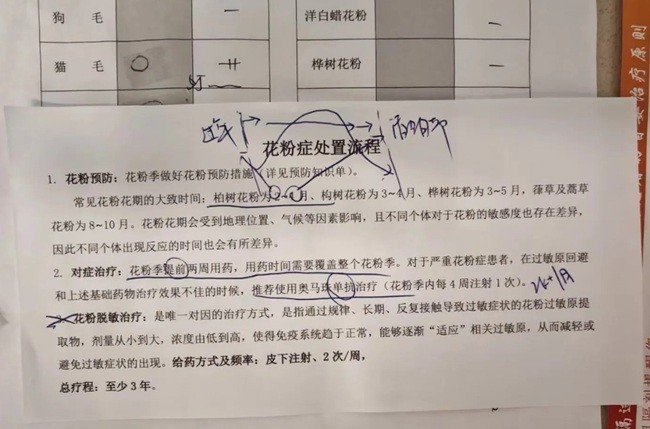 狗 毛 一
洋白蜡花粉 一
猫 毛 ○ 卄
桦树花粉 一
花粉症处置流程
1. 花粉预防：花粉季做好花粉预防措施（详见预防知识单）。
常见花粉花期的大致时间：柏树花粉为2~4月、构树花粉为3~4月、桦树花粉为3~5月，葎草及蒿草
花粉为8~10月。花粉花期会受到地理位置、气候等因素影响，且不同个体对于花粉的敏感度也存在差异，
因此不同个体出现反应的时间也会有所差异。
2. 对症治疗：花粉季提前两周用药，用药时间需要覆盖整个花粉季。对于严重花粉症患者，在过敏原回避
和上述基础药物治疗效果不佳的时候，推荐使用奥马珠单抗治疗（花粉季内每4周注射1次）。
花粉脱敏治疗：是唯一对因的治疗方式，是指通过规律、长期、反复接触导致过敏症状的花粉过敏原提
取物，剂量从小到大，浓度由低到高，使得免疫系统趋于正常，能够逐渐“适应”相关过敏原，从而减轻或
避免过敏症状的出现。给药方式及频率：皮下注射、2次/周，
总疗程：至少3年。
治疗原则